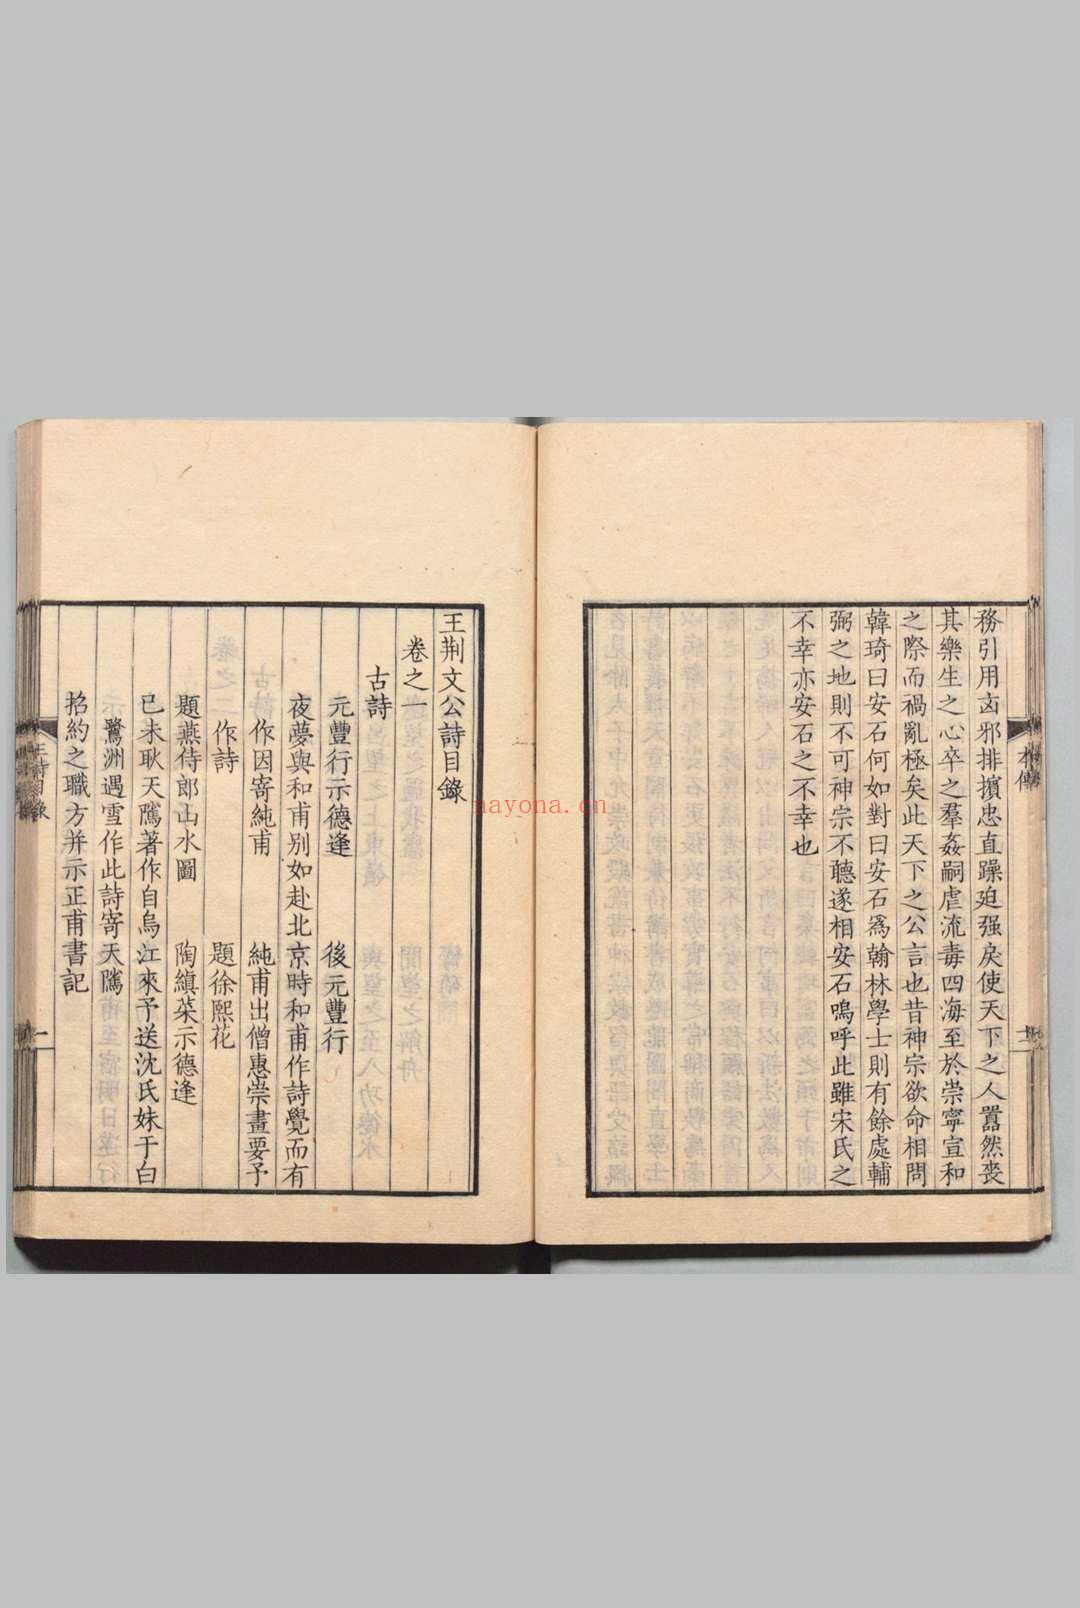 務引用㐫邪排擯忠直躁廹强戾使天下之人嚣然喪
其樂生之心卒之羣姦嗣虐流毒四海至於崇寧宣和
之際而禍亂極矣此天下之公言也昔神宗欲命相問
韓琦曰安石何如對曰安石爲翰林學士則有餘處輔
弼之地則不可神宗不聽遂相安石嗚呼此雖宋氏之
不幸亦安石之不幸也
本傳
王荆文公詩目錄
卷之一
古詩
元豐行示德逢 後元豐行
夜夢與和甫别如赴北京時和甫作詩覺而有
作因寄純甫 純甫出僧惠崇畫要予
作詩 題徐熙花
題燕侍郎山水圖 陶縝菜示德逢
已未耿天騭著作自烏江來予送沈氏妹于白
鷺洲遇雪作此詩寄天騭
招約之職方并示正甫書記
王詩目錄
一
nayona.cn